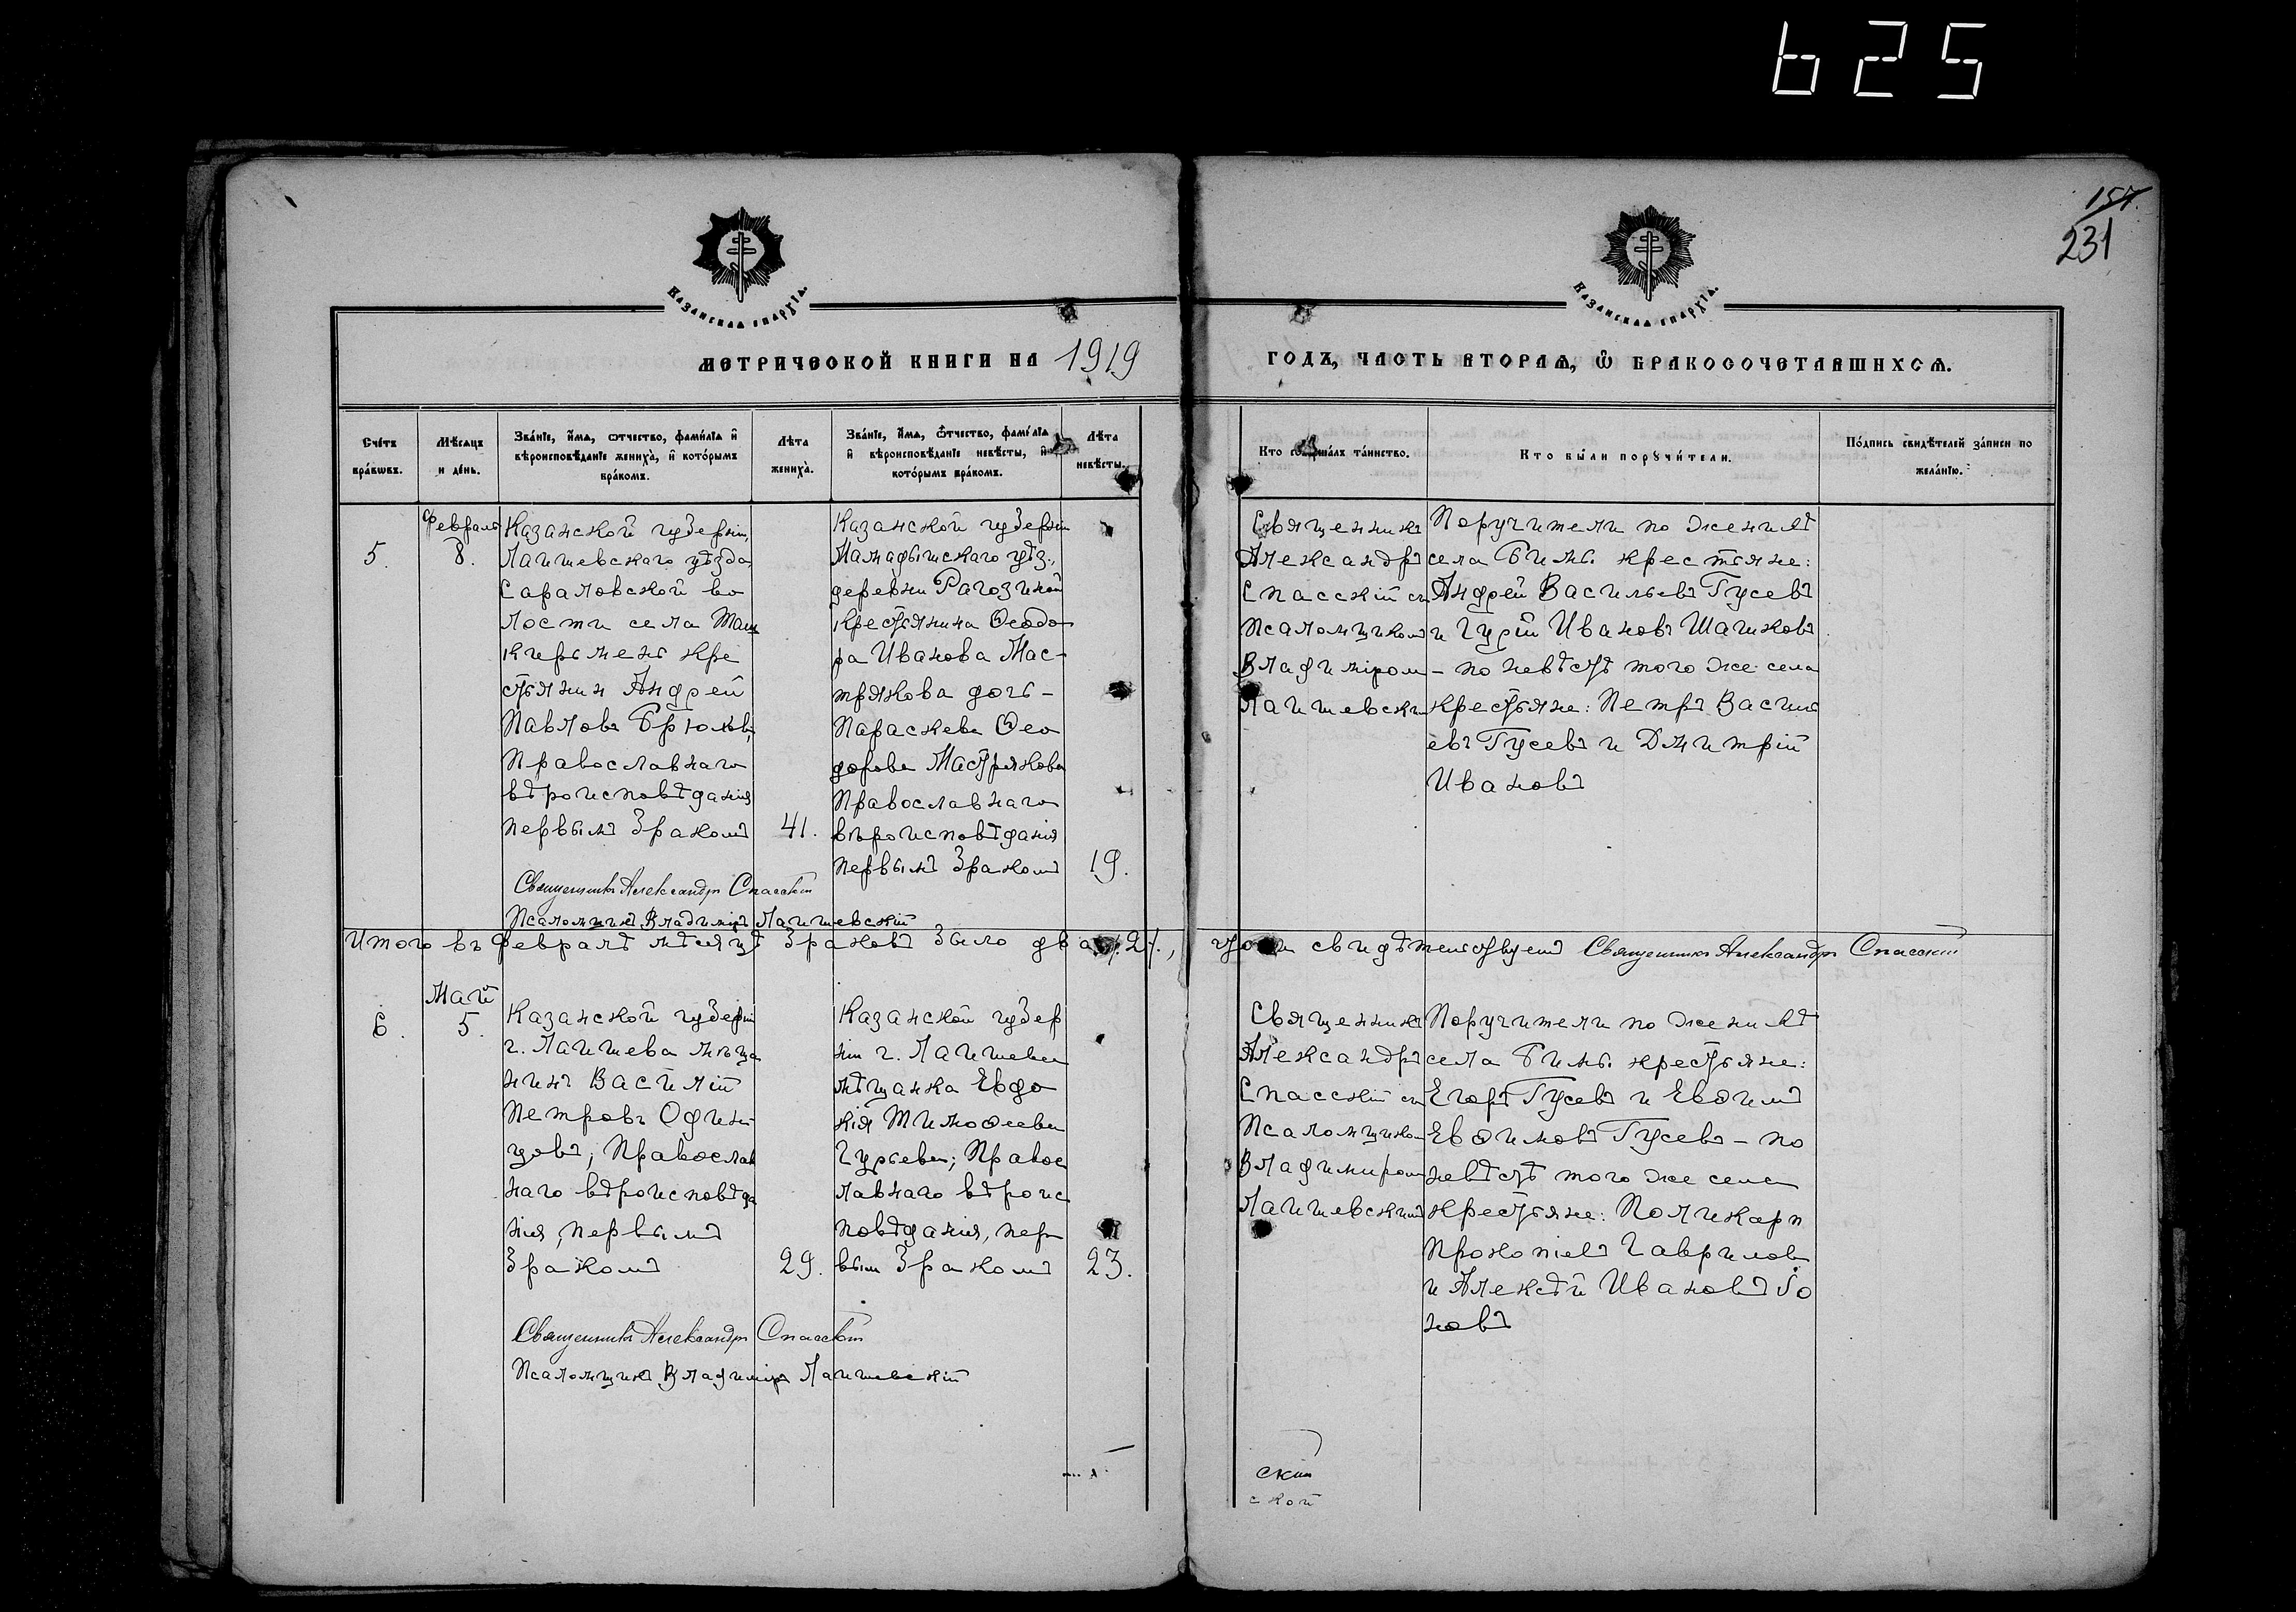 625
157.
231
Казанская епархіѧ.
Казанская епархіѧ.
МЕТРИЧЕСКОЙ КНИГИ НА 1919
ГОДЪ, ЧАСТЬ ВТОРАѦ, Ѿ БРАКОСОЧЕТАВШИХСѦ.
Счетъ
браковъ.
Мѣсяцъ
и день.
Званіе, имѧ, отчество, фамилія и
вѣроисповѣданіе жениха, и которымъ
бракомъ.
Лѣта
жениха.
Званіе, имѧ, отчество, фамилія
и вѣроисповѣданіе невѣсты, и
которымъ бракомъ.
Лѣта
невѣсты.
Кто совершалъ таинство.
Кто были поручители.
Подпись свидѣтелей записи по
желанію.
5.
Февраль
8.
Казанской губерніи,
Лаишевскаго уѣзда
Сараловской во
лости села Таш
кирмень кре
стьянин Андрей
Павловъ
Православнаго
вѣроисповѣданія
первымъ бракомъ
41.
Казанской губерніи
Мамадышскаго уѣз.,
деревни Рагозиной
крестьянина Ѳеодо
ра Иванова Мас-
трякова дочь -
Параскева Ѳео
дорова Мастрякова
Православнаго
вѣроисповѣданія
первымъ бракомъ
19.
Священникъ
Александръ
Спасскій съ
Псаломщикомъ
Владиміром
Лаишевским
Поручители по женихѣ
села крестьяне:
Андрей Васильевъ Гусевъ
и Гурій Ивановъ Шашковъ
- по невѣстѣ того же села
крестьяне: Петръ Василь
евъ Гусевъ и Дмитрій
Ивановъ
Священникъ Александръ Спасскій
Псаломщикъ Владиміръ Лаишевскій
Итого въ Февралѣ мѣсяцѣ браковъ было два /2/.,
свидѣтельствуемъ Священникъ Александръ Спасскій
6.
Май
5.
Казанской губерніи
г. Лаишева мѣща
нинъ Василій
Петровъ Один
цовъ, Православ
наго вѣроисповѣда
нія, первымъ
бракомъ
29.
Казанской губер
ніи г. Лаишева
мѣщанка Евдо
кія Тимоѳеева
Гурьева; Правос
лавнаго вѣроис
повѣданія, пер
вым бракомъ
23.
Священникъ
Александръ
Спасскій съ
Псаломщиком
Владимиром
Лаишевским
Поручители по женихѣ
села крестьяне:
Егоръ Гусевъ и Евѳимъ
Евѳимовъ Гусевъ - по
невѣстѣ того же села
крестьяне: Поликарп
Прокопіевъ Гаврилов
и Алексѣй Ивановъ
Священникъ Александръ Спасскій
Псаломщикъ Владиміръ Лаишевскій
скій
ской